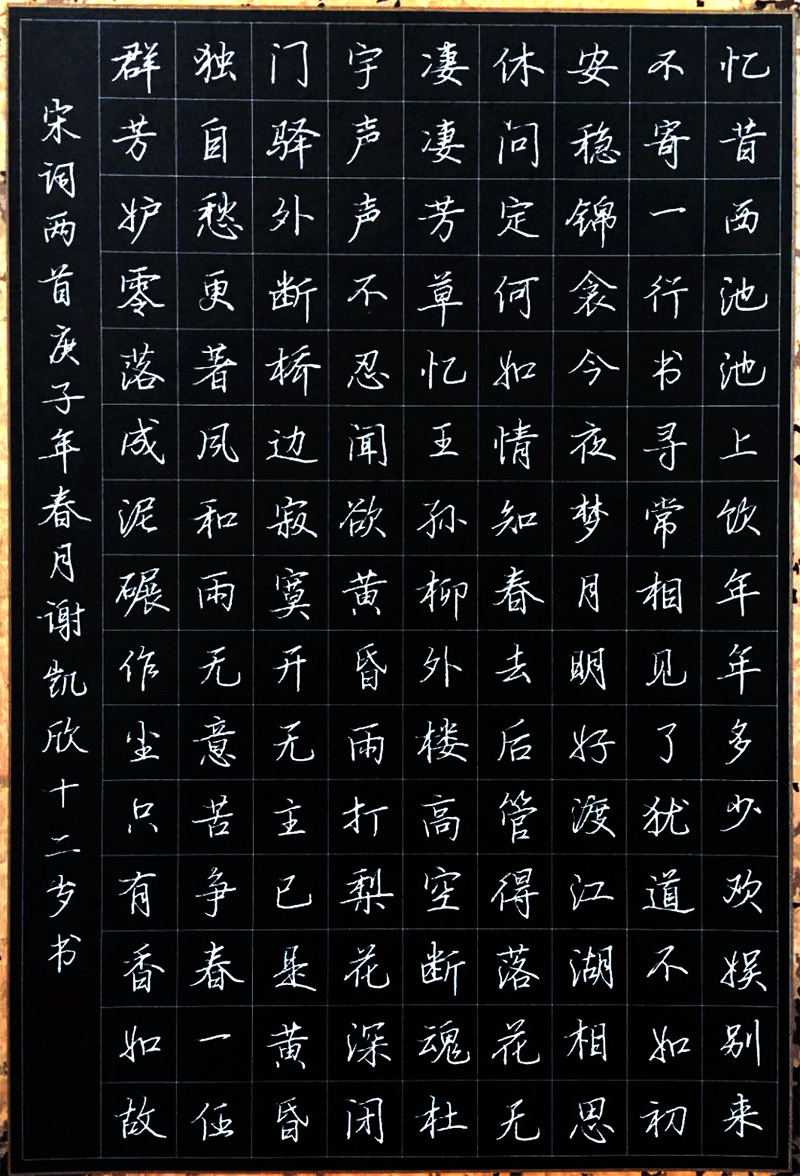 忆昔西池池上饮年年多少欢娱别来
不寄一行书寻常相见了犹道不如初
安稳锦衾今夜梦月明好渡江湖相思
休问定何如情知春去后管得落花无
凄凄芳草忆王孙柳外楼高空断魂杜
宇声声不忍闻欲黄昏雨打梨花深闭
门驿外断桥边寂寞开无主已是黄昏
独自愁更著风和雨无意苦争春一任
群芳妒零落成泥碾作尘只有香如故
宋词两首庚子年春月谢凯欣十二岁书